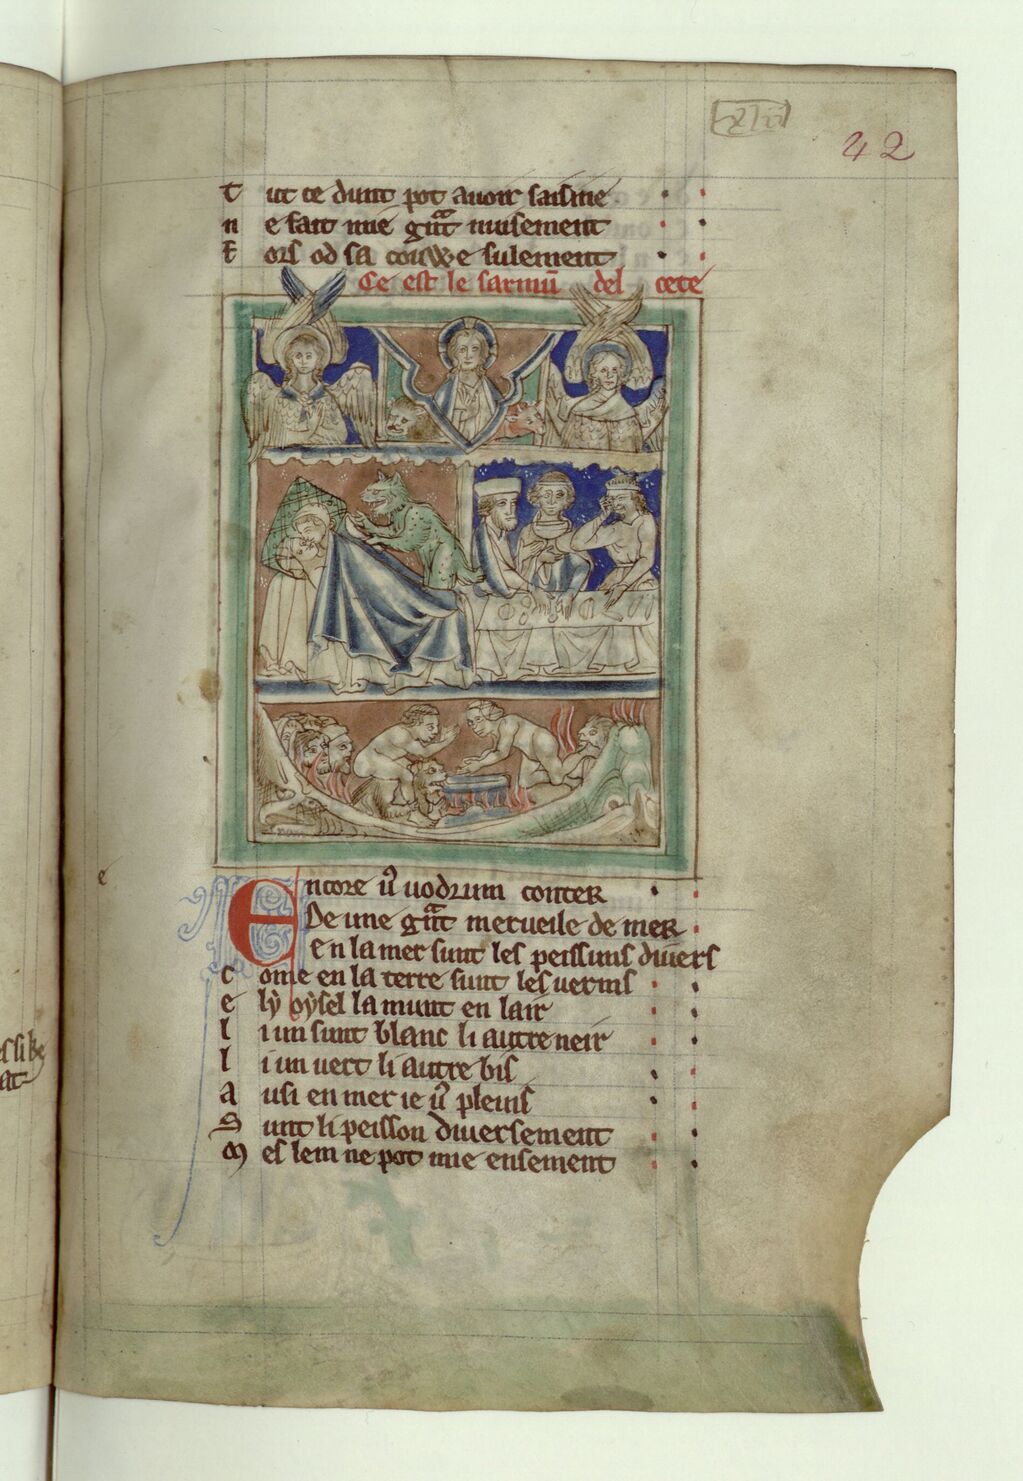 42
Tut ce dunt pot avoir saisine
ne fait mie gᵃnt nuisement
Fors od sa couwe sulement
Ce est le sarmū del cete
Encore uͦ vodrum conter
De une gᵃnt merveile de mer
En la mer sunt les peissuns divers
come en la terre sunt les verms
e ly oysel la munt en lair
li un sunt blanc li autre neir
li un vert li autre bis
ausi en mer ie uͦ plevis
Sunt li peisson diversement
Mes lem ne pot mie ensement
e